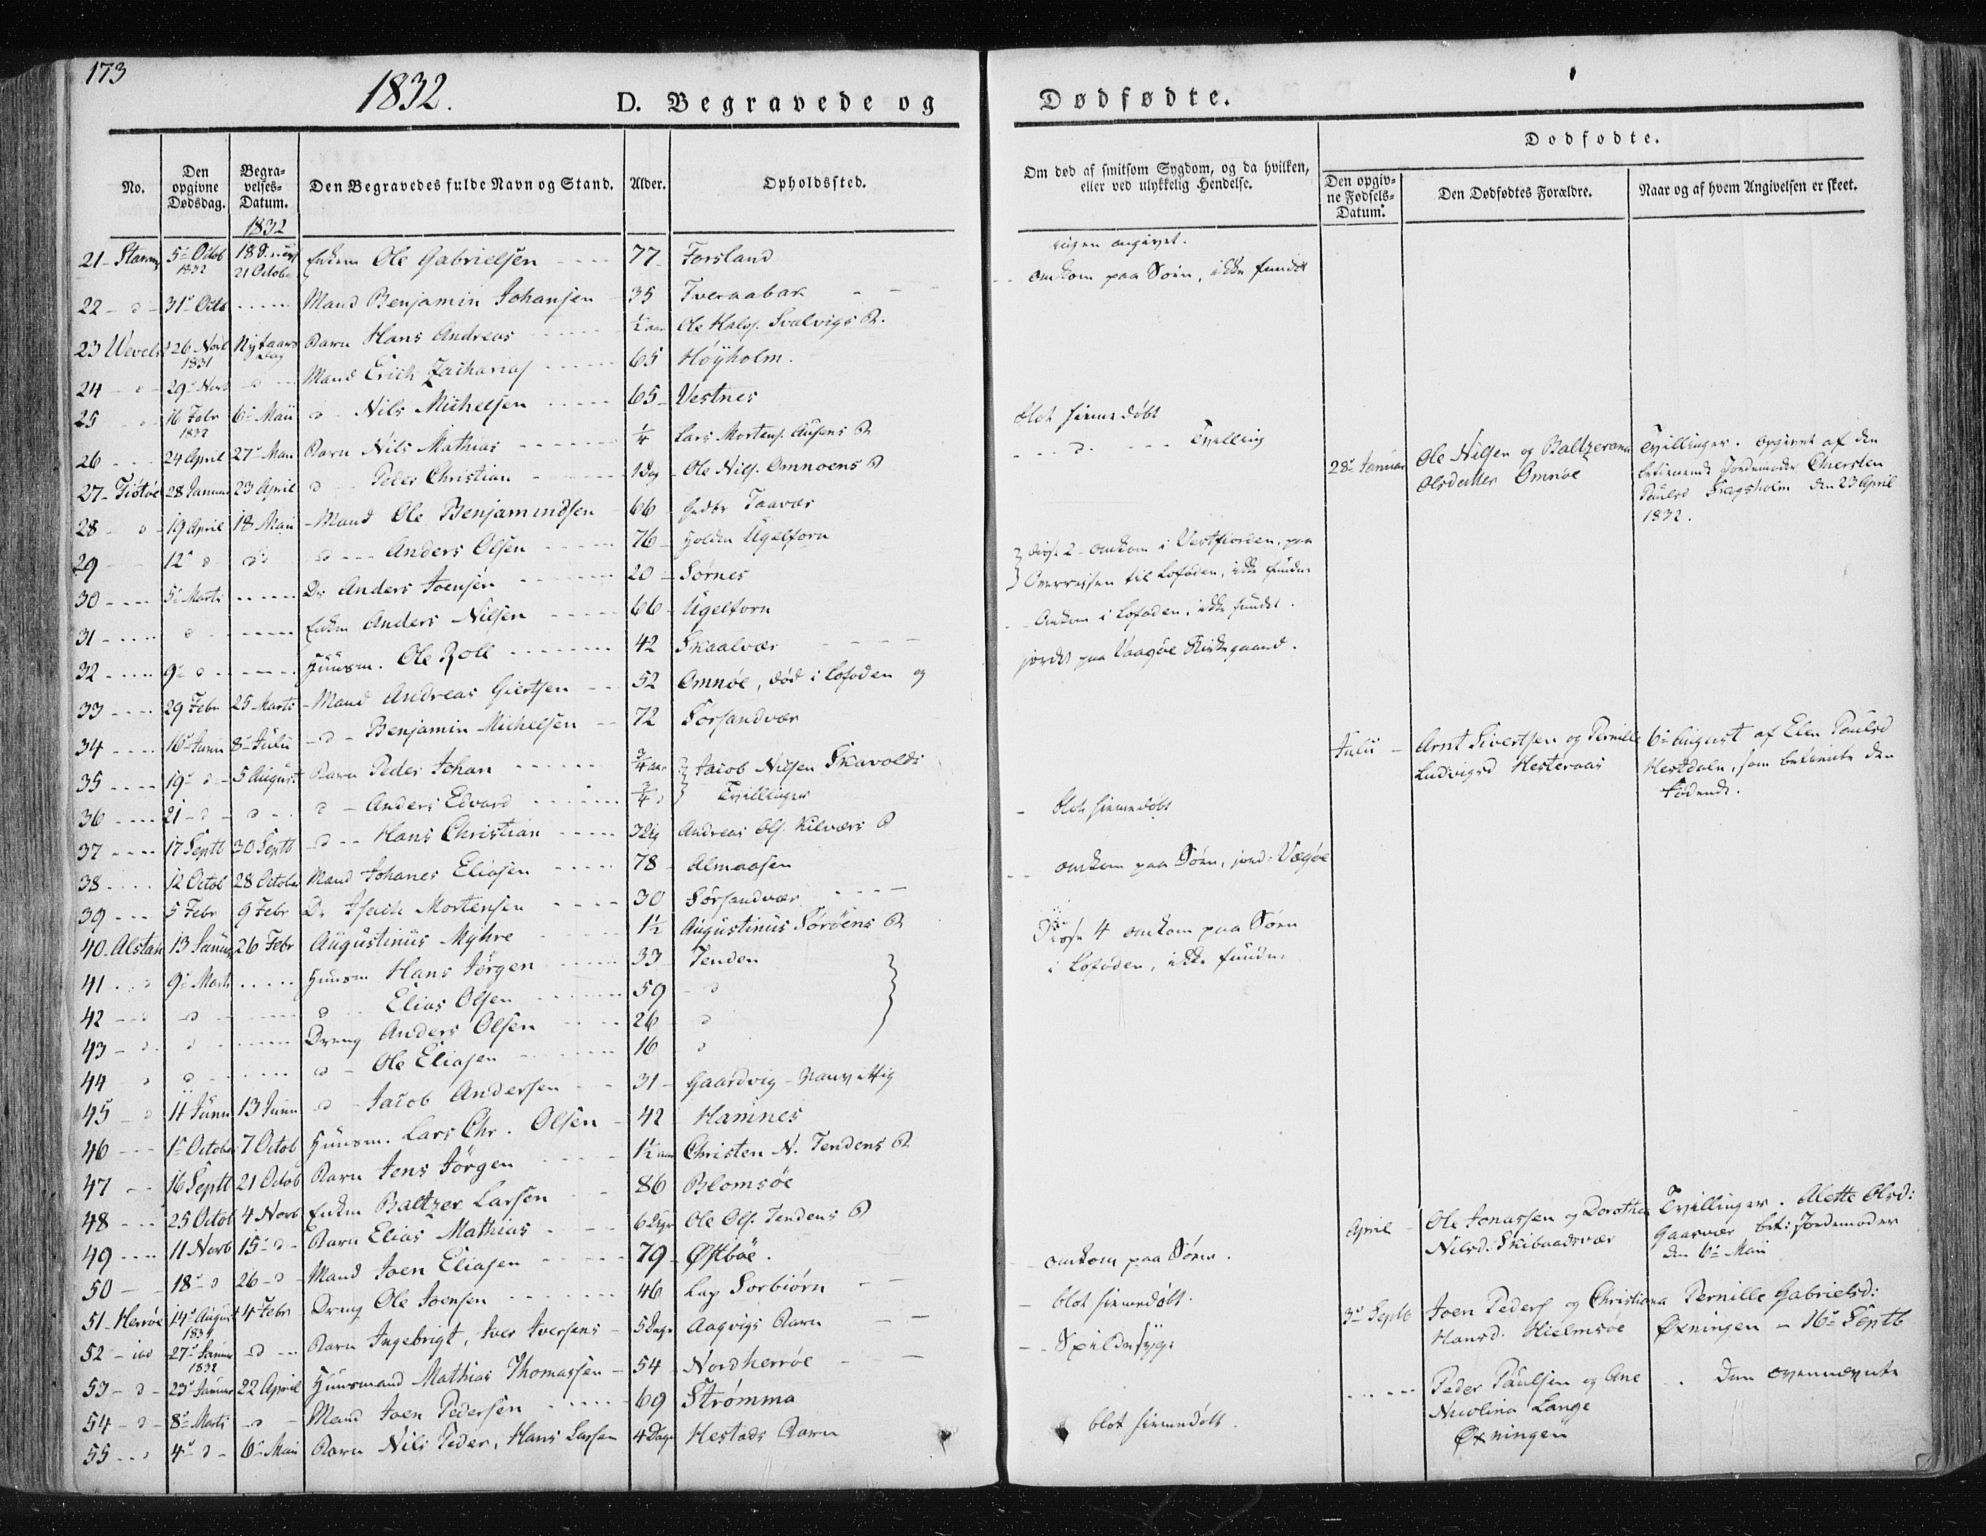 173
1832.
D. Begravede og
Dødfødte.
Dødfødte.
No.
Den opgivne Dødsdag.
Begravelses-Datum.
Den Begravedes fulde Navn og Stand.
Alder.
Opholdssted.
Om død af smitsom Sygdom, og da hvilken, eller ved ulykkelig Hendelse.
Den opgivne Fødsels-Datum.
Den Dødfødtes Forældre.
Naar og af hvem Angivelsen er skeet.
1832
21 5 Octob 1832 21 Octobr Enkem Ole Gabrielsen 77 Forsland
22 - d - 31 Octb Mand Benjamin Johansen 35 Tveraabak omkom paa Søen, ikke fundet
23 26 Novb 1831 Nytaarsdag Barn Hans Andreas 1/2 aar Ole Halvs. Svalvigs B.
24 - d 29 Novb - d - Mand Erich Zacharias 65 Høyholm.
25 d 16 Febr 1832 6 Maii d - Nils Michelsen 65 Vestnes
26 24 April 27 Maii Barn Nils Mathias 1/4 Lars Mortens. Ausens B blot hiemedøbt
27 - Tiøtøe 28 Januar 23 April d Peder Christian 1 Dag Ole Nils. Omnoens B - d - Tvilling
28 - d 19 April 18 Maii Mand Ole Benjaminsen 66 Taavær
29 12 d d d - Anders Olsen 76 Ugelforn
30 5 Marts Dr Anders Joensen 20 Sørnes
31 d Enkem Anders Nilsen 66 Ugelforn
32 9 d Huusm. Ole Roll 42 Skaalvær
33 29 Febr 25 Marts Mand Andreas Giertsen 52 Omnøe, død i Lofoden og
34 16 Junii 8 Julii - d - Benjamin Michelsen 72 Sørsandvær
35 19 d 5 August Barn Peder Johan 3/4 aar Jacob Nilsen Skavolds
36 21 - d - d d - Anders Edvard 3/4 d Tvillinger
37 17 Septb 30 Septb - d - Hans Christian Andreas Ols. Kilværs B
38 12 Octob 28 October Mand Johanes Eliasen 78 Almaasen
39 5 Febr 9 Febr Dr Mortensen 30 Sørsandvær
40 Alstah 13 Januar 26 Febr Augustinus Myhre 1 1/2 Augustinus Sørøens B
41 d 9 Marts Huusm Hans Jørgen 33 Tenden
42 d d d Elias Olsen 59 d
43 d d Dreng Anders Olsen 26 d
44 d d d - Ole Eliasen 16 d
45 d 11 Junii 13 Junii d - Jacob Andersen 31 Gaardvig - vanvittig
46 1 October 7 Octob Huusm. Lars Chr. Olsen 42 Hamnes
47 16 Septb 21 Octob Barn Jens Jørgen 1 1/2 aar Christen N. Tendens B
48 25 Octob 4 Novb Enkem Baltzer Larsen 86 Blomsøe
49 11 Novb 15 - d - Barn Elias Mathias 6 Dage Ole Ols. Tendens B
50 18 d 26 - d - Mand Joen Eliasen 79 Østbøe.
51 - Herrøe 14 August 1831 4 Febr Dreng Ole Joensen 46 Lap Sorbiørn omkom paa Søen.
52 27 Januar 1832 d Barn Ingebrigt, Iver Iversens 5 Dage Aagvigs Barn blot hiemedøbt.
53 - d - 23 Januar 22 April Huusmand Mathias Thomassen 54 Nordherrøe Spedalsk
54 - d - 8 Marts d Mand Joen Pedersen 69 Strømma
55 d 4 - d - 6 Maii Barn Nils Peder, Hans Larsen 4 Dage Hestads Barn blot hiemedøbt.
omkom i Vestfiorden, paa
Overreisen til Lofoden, ikke fundne
Omkom i Lofoden, ikke fundet.
jordet paa Vaagøe Kirkegaard.
blot hiemedøbt
omkom paa Søen, jord: Vegøe
4 omkom paa Søen
i Lofoden, ikke fundne
28 Januar Ole Nilsen og Baltzerana Olsdatter Omnøe
Tvillinger. Opgivet af den
Jordemoder Chiersten
Paulsd den 23 April
1832.
Julii - Arnt Sivertsen og Pernille Ludvigsd Hesteraas
6 August af Elen Paulsd
Hestdalen, som betiente den
Fødende.
April - Ole Jonassen og Dorothea Nilsd: Skibaadsvær
Tvillinger. Alette Olsd:
Gaasvær Jordemoder
den 6 Maii
3 Septb Joen Peders og Christiana Hansd. Hielmsøe
Pernille Gabrielsd:
Øxningen - 16 Septb
Peder Paulsen og Ane
Nicolina Lange
Øxningen
Den ovennævnte